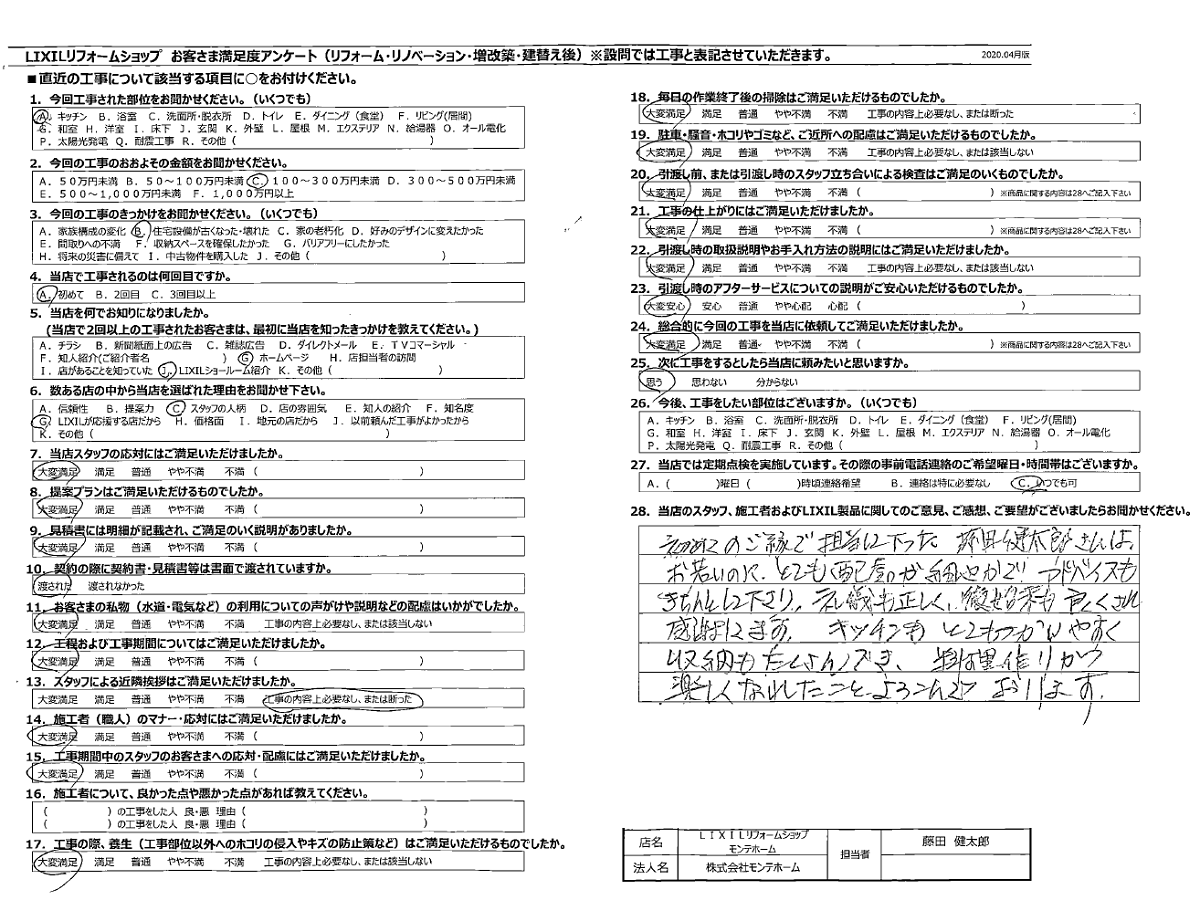 LIXILリフォームショップ お客さま満足度アンケート（リフォーム・リノベーション・増改築・建替え後）※設問では工事と表記させていただきます。
2020.04月版
■直近の工事について該当する項目に○をお付けください。
1．今回工事された部位をお聞かせください。（いくつでも）
A．キッチン B．浴室 C．洗面所・脱衣所 D．トイレ E．ダイニング（食堂） F．リビング(居間)
G．和室 H．洋室 I．床下 J．玄関 K．外壁 L．屋根 M．エクステリア N．給湯器 O．オール電化
P．太陽光発電 Q．耐震工事 R．その他（ ）
2．今回の工事のおおよその金額をお聞かせください。
A．50万円未満 B．50～100万円未満 C．100～300万円未満 D．300～500万円未満
E．500～1,000万円未満 F．1,000万円以上
3．今回の工事のきっかけをお聞かせください。（いくつでも）
A．家族構成の変化 B．住宅設備が古くなった・壊れた C．家の老朽化 D．好みのデザインに変えたかった
E．間取りへの不満 F．収納スペースを確保したかった G．バリアフリーにしたかった
H．将来の災害に備えて I．中古物件を購入した J．その他（ ）
4．当店で工事されるのは何回目ですか。
A．初めて B．2回目 C．3回目以上
5．当店を何でお知りになりましたか。
(当店で2回以上の工事されたお客さまは、最初に当店を知ったきっかけを教えてください。)
A．チラシ B．新聞紙面上の広告 C．雑誌広告 D．ダイレクトメール E．TVコマーシャル
F．知人紹介(ご紹介者名 ) G．ホームページ H．店担当者の訪問
I．店があることを知っていた J．LIXILショールーム紹介 K．その他（ ）
6．数ある店の中から当店を選ばれた理由をお聞かせ下さい。
A．信頼性 B．提案力 C．スタッフの人柄 D．店の雰囲気 E．知人の紹介 F．知名度
G．LIXILが応援する店だから H．価格面 I．地元の店だから J．以前頼んだ工事がよかったから
K．その他（ ）
7．当店スタッフの応対にはご満足いただけましたか。
大変満足 満足 普通 やや不満 不満（ ）
8．提案プランはご満足いただけるものでしたか。
大変満足 満足 普通 やや不満 不満（ ）
9．見積書には明細が記載され、ご満足のいく説明がありましたか。
大変満足 満足 普通 やや不満 不満（ ）
10．契約の際に契約書・見積書等は書面で渡されていますか。
渡された 渡されなかった
11．お客さまの私物（水道・電気など）の利用についての声がけや説明などの配慮はいかがでしたか。
大変満足 満足 普通 やや不満 不満 工事の内容上必要なし、または該当しない
12．工程および工事期間についてはご満足いただけましたか。
大変満足 満足 普通 やや不満 不満（ ）
13．スタッフによる近隣挨拶はご満足いただけましたか。
大変満足 満足 普通 やや不満 不満 工事の内容上必要なし、または断った
14．施工者（職人）のマナー・応対にはご満足いただけましたか。
大変満足 満足 普通 やや不満 不満（ ）
15．工事期間中のスタッフのお客さまへの応対・配慮にはご満足いただけましたか。
大変満足 満足 普通 やや不満 不満（ ）
16．施工者について、良かった点や悪かった点があれば教えてください。
（ ）の工事をした人 良・悪 理由（ ）
（ ）の工事をした人 良・悪 理由（ ）
17．工事の際、養生（工事部位以外へのホコリの侵入やキズの防止策など）はご満足いただけるものでしたか。
大変満足 満足 普通 やや不満 不満 工事の内容上必要なし、または該当しない
18．毎日の作業終了後の掃除はご満足いただけるものでしたか。
大変満足 満足 普通 やや不満 不満 工事の内容上必要なし、または断った
19．駐車・騒音・ホコリやゴミなど、ご近所への配慮はご満足いただけるものでしたか。
大変満足 満足 普通 やや不満 不満 工事の内容上必要なし、または該当しない
20．引渡し前、または引渡し時のスタッフ立ち合いによる検査はご満足のいくものでしたか。
大変満足 満足 普通 やや不満 不満（ ）※商品に関する内容は28へご記入下さい
21．工事の仕上がりにはご満足いただけましたか。
大変満足 満足 普通 やや不満 不満（ ）※商品に関する内容は28へご記入下さい
22．引渡し時の取扱説明やお手入れ方法の説明にはご満足いただけましたか。
大変満足 満足 普通 やや不満 不満 工事の内容上必要なし、または該当しない
23．引渡し時のアフターサービスについての説明がご安心いただけるものでしたか。
大変安心 安心 普通 やや心配 心配（ ）
24．総合的に今回の工事を当店に依頼してご満足いただけましたか。
大変満足 満足 普通 やや不満 不満（ ）※商品に関する内容は28へご記入下さい
25．次に工事をするとしたら当店に頼みたいと思いますか。
思う 思わない 分からない
26．今後、工事をしたい部位はございますか。（いくつでも）
A．キッチン B．浴室 C．洗面所・脱衣所 D．トイレ E．ダイニング（食堂） F．リビング(居間)
G．和室 H．洋室 I．床下 J．玄関 K．外壁 L．屋根 M．エクステリア N．給湯器 O．オール電化
P．太陽光発電 Q．耐震工事 R．その他（ ）
27．当店では定期点検を実施しています。その際の事前電話連絡のご希望曜日・時間帯はございますか。
A．（ ）曜日（ ）時頃連絡希望 B．連絡は特に必要なし C．いつでも可
28．当店のスタッフ、施工者およびLIXIL製品に関してのご意見、ご感想、ご要望がございましたらお聞かせください。
初めてのご縁で担当に下った 藤田健太郎さんは、
お若いのに、とても配慮が細やかで アドバイスも
きちんとして下さり、礼儀も正しく、
感謝します。 キッチンも とてもつかいやすく
収納もたくさんでき、 料理作りが
楽しくなれたこと よろこんで おります。
店名 LIXILリフォームショップ モンテホーム 担当者 藤田 健太郎
法人名 株式会社モンテホーム